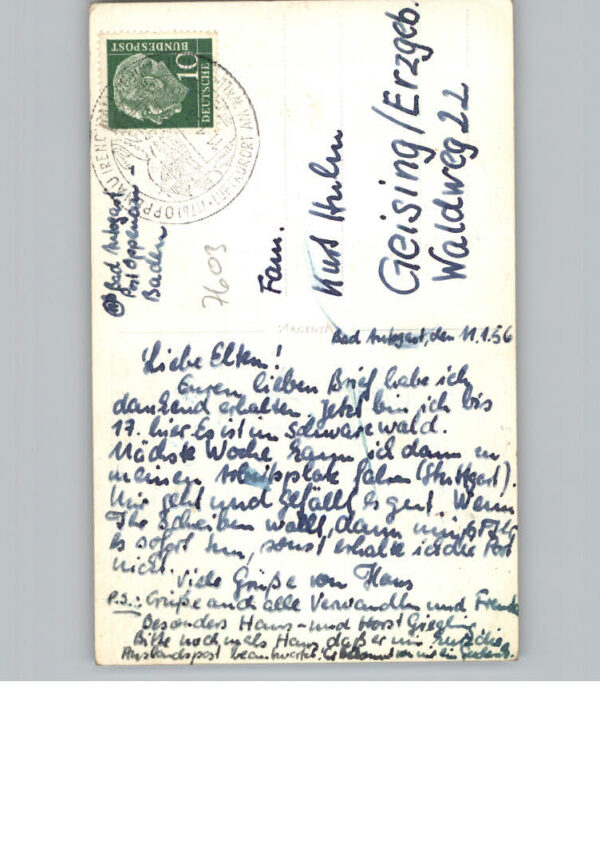 DEUTSCHE
BUNDESPOST
10
OPPENAU (RENCHTAL)
LUFTKURORT
Bad Antogast
Post Oppenau
Baden
7603
Fam.
Kurt
Geising/Erzgeb.
Waldweg 22
Bad Antogast, den 11.1.56
Liebe Eltern!
Euren lieben Brief habe ich
dankend erhalten. Jetzt bin ich bis
17. hier. Es ist im Schwarzwald.
Nächste Woche kann ich dann zu
meinen Arbeitsplatz fahren (Stuttgart).
Mir geht und gefällt es gut. Wenn
Ihr schreiben wollt, dann müßt Ihr
es sofort tun, sonst erhalte ich die Post
nicht.
Viele Grüße von Hans
P.S.: Grüße auch alle Verwandten und Freunde
Besonders Hans- und Horst
Bitte nochmals Hans, daß er mir
Auslandspost beantwortet.